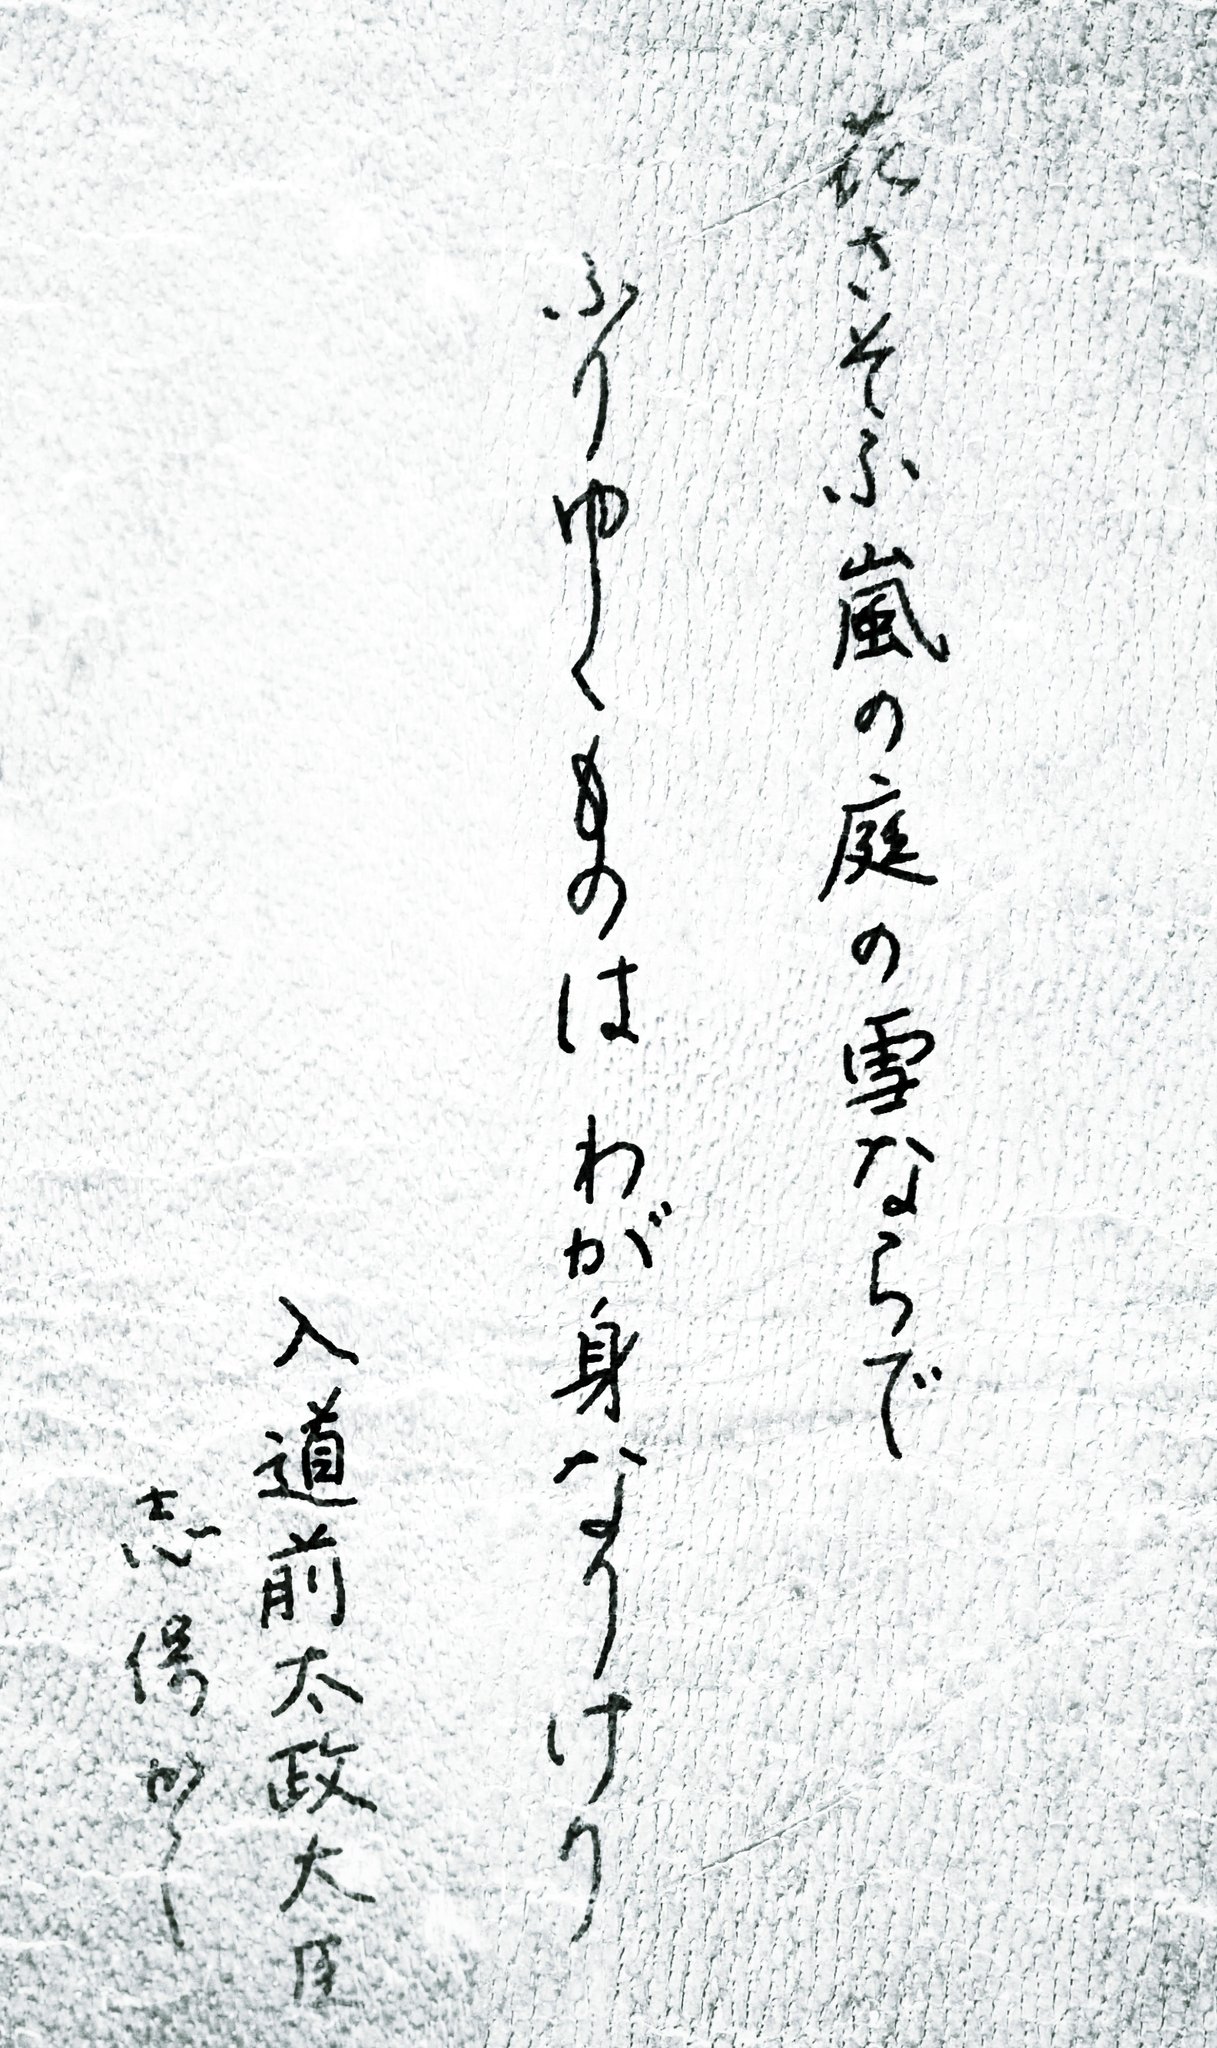 花さそふ嵐の庭の雪ならで
ふりゆくものはわが身なりけり
入道前太政大臣
志保かく